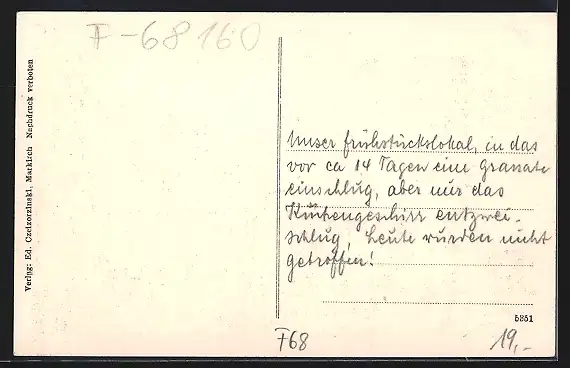 F-68160
Verlag: Ed. Czetzorzinski, Markirch Nachdruck verboten
Unser Frühstückslokal, in das
vor ca 14 Tagen eine Granate
einschlug, aber nur das
Küchengeschirr entzwei-
schlug, Leute wurden nicht
getroffen!
5351
F68
19,-